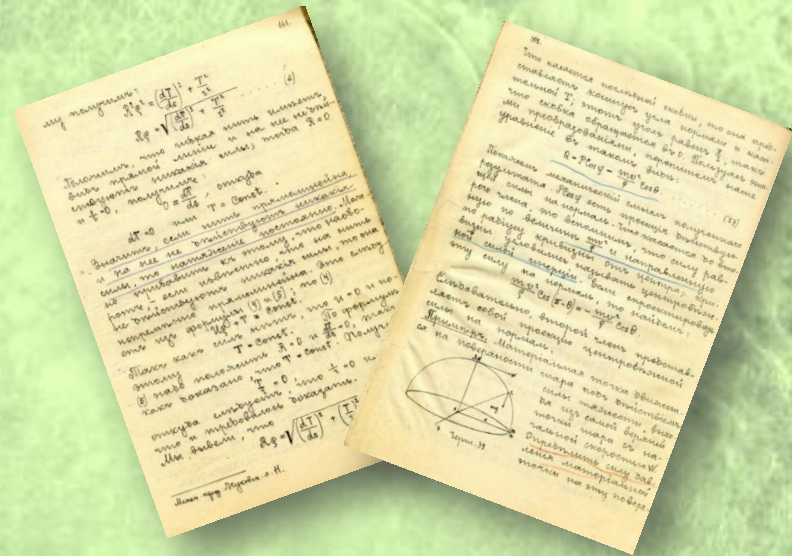 161.
му получимъ:
R²ρ² = (dT/ds)² + T²/ρ² ..... (6)
Rρ = √(dT/ds)² + T²/ρ²
Положимъ, что нѣкая нить имѣетъ
видъ прямой линіи и на нее не дѣй-
ствуютъ никакія силы; тогда R=0
и 1/ρ=0, получимъ:
0 = dT/ds, откуда
dT=0 или T = Const.
Значитъ, если нить прямолинейна
и на нее не дѣйствуютъ никакія
силы, то натяженіе постоянно.
прибавить къ этому, что наобо-
ротъ, если извѣстно, что на нить
не дѣйствуютъ никакія силы, то она
непремѣнно прямолинейна. Это слѣду-
етъ изъ формулъ (4) и (5); по (4)
= T = Const.
Такъ какъ силъ нѣтъ, то
этому T = Const. По формулѣ
(6) надо положить R=0 и dT/ds=0, такъ
какъ доказано, что T = Const.
= 0
откуда слѣдуетъ, что 1/ρ = 0 и
что и требовалось доказать.
Мы вывели, что
Rρ = √(dT/ds)² + (T/ρ)²
Что касается послѣдней скобки, то она пред-
ставляетъ косинусъ угла нормали и каса-
тельной T; этотъ уголъ равенъ, такъ
что скобка обращается въ 0. Пользуясь эти-
ми преобразованіями, перепишемъ наше
уравненіе въ такомъ видѣ:
Q = P Cos q - mv²/ρ Cos θ. ..... (57)
Покажемъ механическій смыслъ полученнаго
результата. P Cos q есть проекція дѣйствую-
щей силы на нормаль. Что касается до вто-
рого члена, то вспомнимъ, что силу рав-
ную по величинѣ mv²/ρ и направленную
по радіусу кривизны отъ центра кри-
визны условились называть центробѣж-
ной силы инерціи. проектировать
эту силу на нормаль, то найдемъ,
mv²/ρ Cos (π-θ) = - mv²/ρ Cos θ.
Слѣдовательно, второй членъ представ-
ляетъ собой проекцію центробѣжной
силы на нормаль.
Примѣръ. Матеріальная точка движет-
ся на поверхности шара подъ дѣйствіемъ
силы тяжести, вы
изъ самой верхней
точки шара съ на-
чальной скоростью
Опредѣлить силу дав-
ленія матеріальной
точки на эту поверх-
Черт. 39